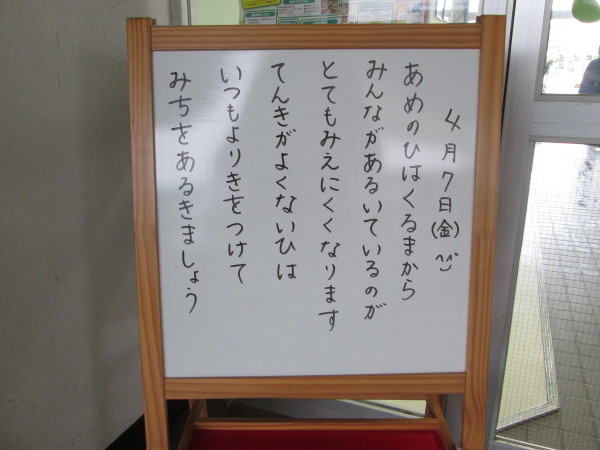 4月7日(金)
あめのひはくるまから
みんながあるいているのが
とてもみえにくくなります
てんきがよくないひは
いつもよりきをつけて
みちをあるきましょう